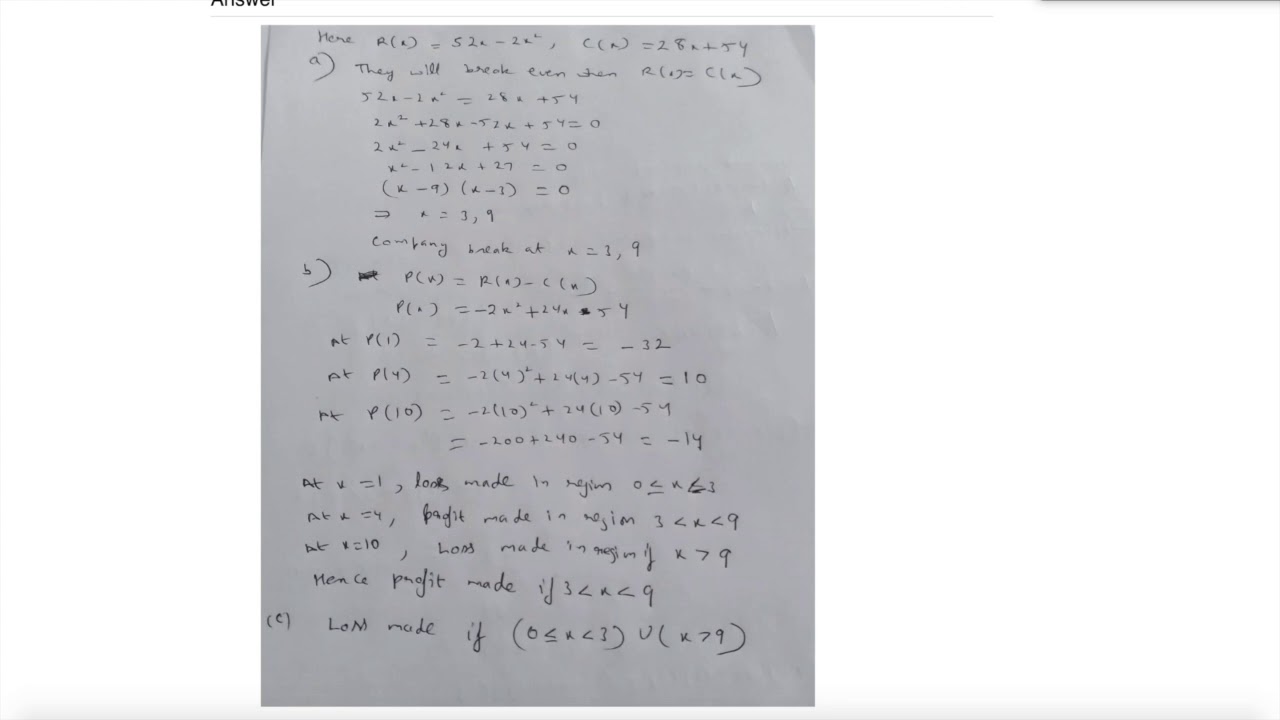 Answer
Here R(x) = 52x - 2x², C(x) = 28x + 54
a) They will break even when R(x) = C(x)
52x - 2x² = 28x + 54
2x² + 28x - 52x + 54 = 0
2x² - 24x + 54 = 0
x² - 12x + 27 = 0
(x - 9) (x - 3) = 0
⇒ x = 3, 9
Company break at x = 3, 9
b) P(x) = R(x) - C(x)
P(x) = -2x² + 24x - 54
At P(1) = -2 + 24 - 54 = -32
At P(4) = -2(4)² + 24(4) - 54 = 10
At P(10) = -2(10)² + 24(10) - 54
= -200 + 240 - 54 = -14
At x = 1, loss made in region 0 ≤ x < 3
At x = 4, profit made in region 3 < x < 9
At x = 10, Loss made in region if x > 9
Hence profit made if 3 < x < 9
(c) Loss made if (0 ≤ x < 3) ∪ (x > 9)